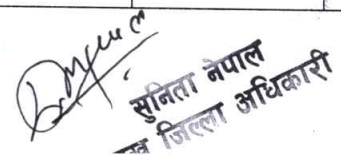 सुनिता नेपाल
जिल्ला अधिकारी